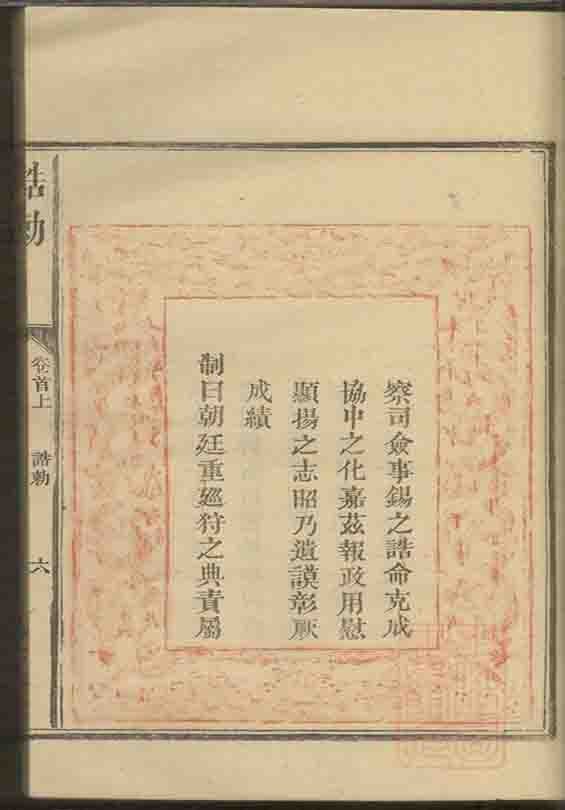 察司僉事錫之誥命克成
協中之化嘉茲報政用慰
顯揚之志昭乃遺謨彰厥
成績
制曰朝廷重廵狩之典責屬
誥勅
卷首上
誥勅
六